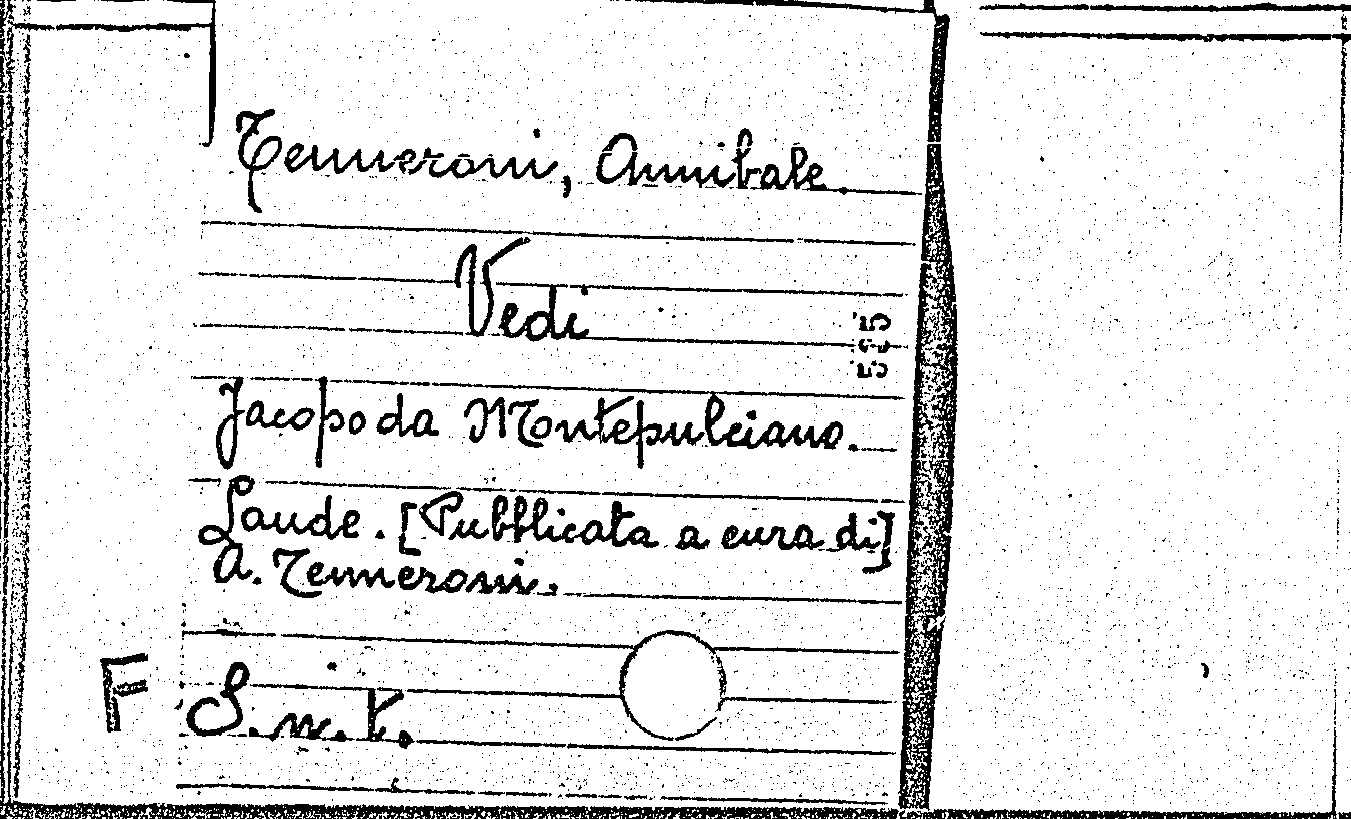 Tenneroni, Annibale.
Vedi
Jacopo da Montepulciano.
Laude. [Pubblicata a cura di]
A. Tenneroni.
F S.n.t.